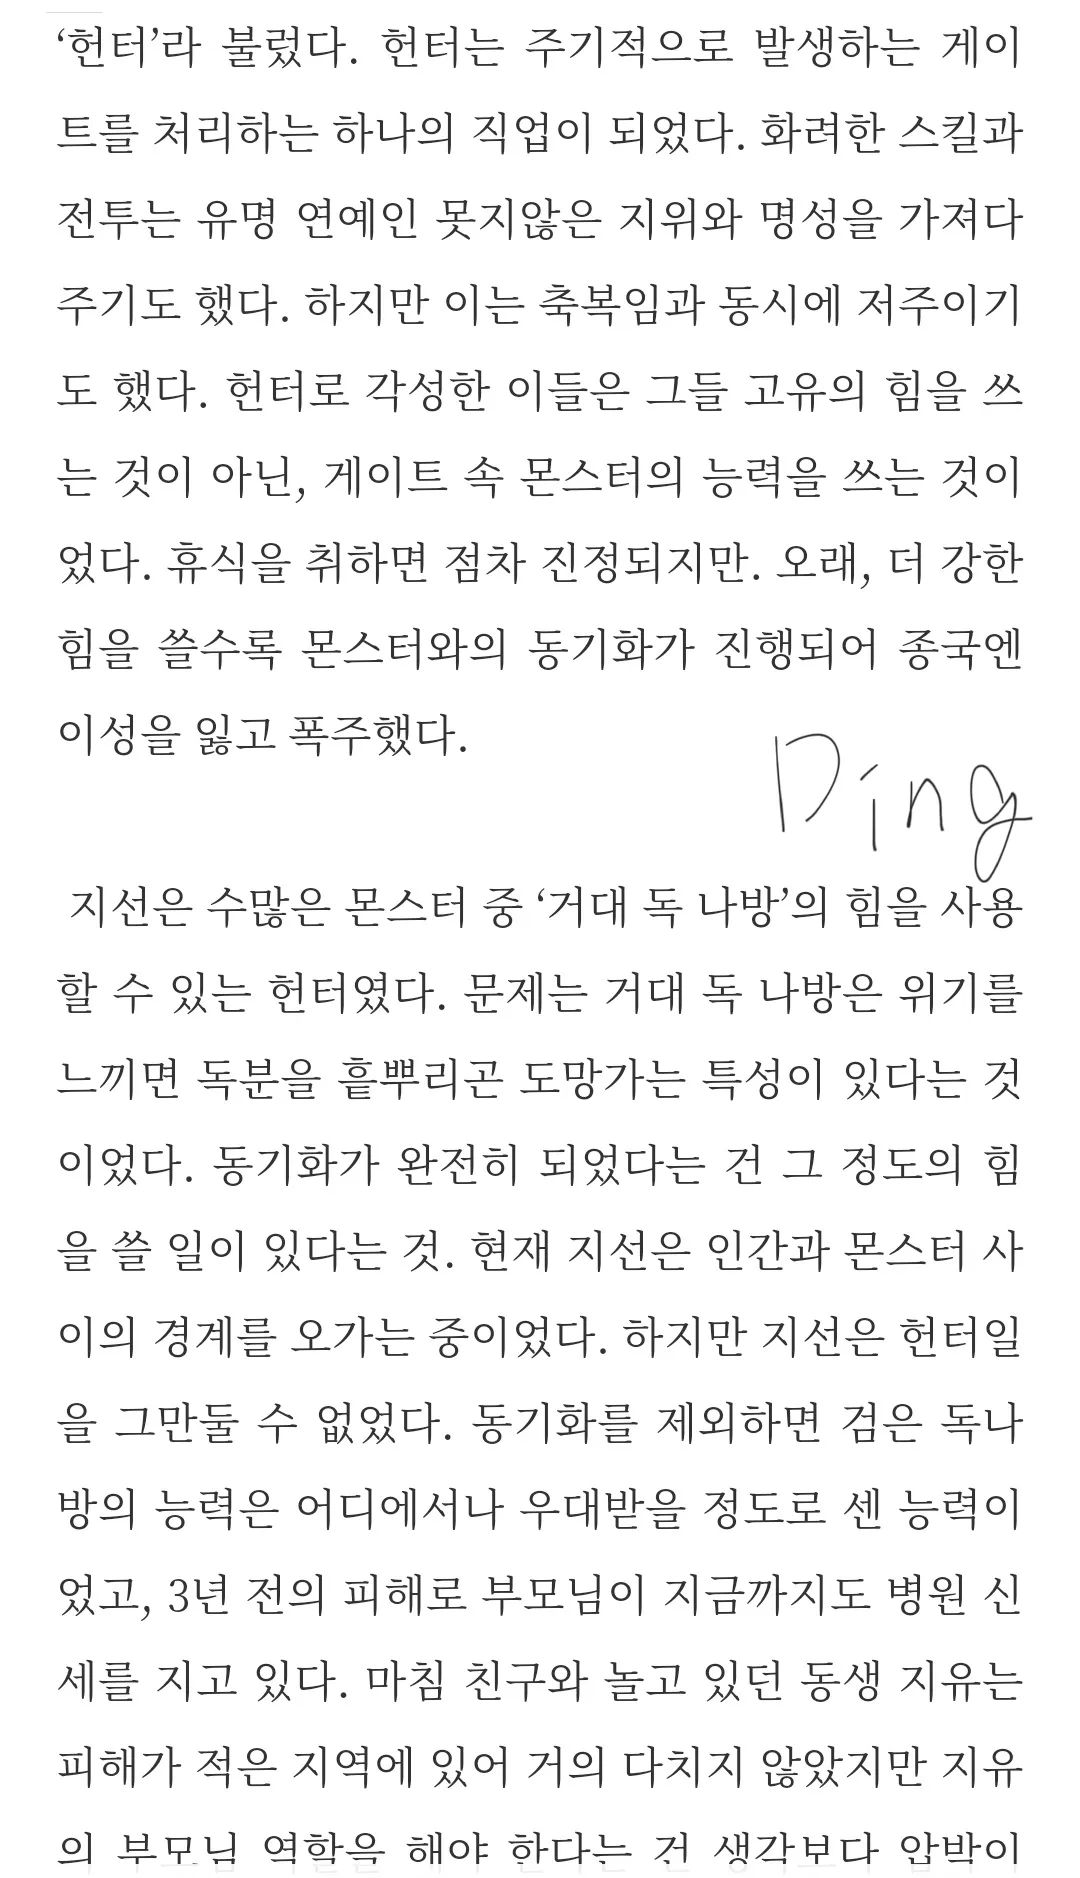 ‘헌터’라 불렀다. 헌터는 주기적으로 발생하는 게이
트를 처리하는 하나의 직업이 되었다. 화려한 스킬과
전투는 유명 연예인 못지않은 지위와 명성을 가져다
주기도 했다. 하지만 이는 축복임과 동시에 저주이기
도 했다. 헌터로 각성한 이들은 그들 고유의 힘을 쓰
는 것이 아닌, 게이트 속 몬스터의 능력을 쓰는 것이
었다. 휴식을 취하면 점차 진정되지만. 오래, 더 강한
힘을 쓸수록 몬스터와의 동기화가 진행되어 종국엔
이성을 잃고 폭주했다.
Ding
지선은 수많은 몬스터 중 ‘거대 독 나방’의 힘을 사용
할 수 있는 헌터였다. 문제는 거대 독 나방은 위기를
느끼면 독분을 흩뿌리곤 도망가는 특성이 있다는 것
이었다. 동기화가 완전히 되었다는 건 그 정도의 힘
을 쓸 일이 있다는 것. 현재 지선은 인간과 몬스터 사
이의 경계를 오가는 중이었다. 하지만 지선은 헌터일
을 그만둘 수 없었다. 동기화를 제외하면 검은 독나
방의 능력은 어디에서나 우대받을 정도로 센 능력이
었고, 3년 전의 피해로 부모님이 지금까지도 병원 신
세를 지고 있다. 마침 친구와 놀고 있던 동생 지유는
피해가 적은 지역에 있어 거의 다치지 않았지만 지유
의 부모님 역할을 해야 한다는 건 생각보다 압박이